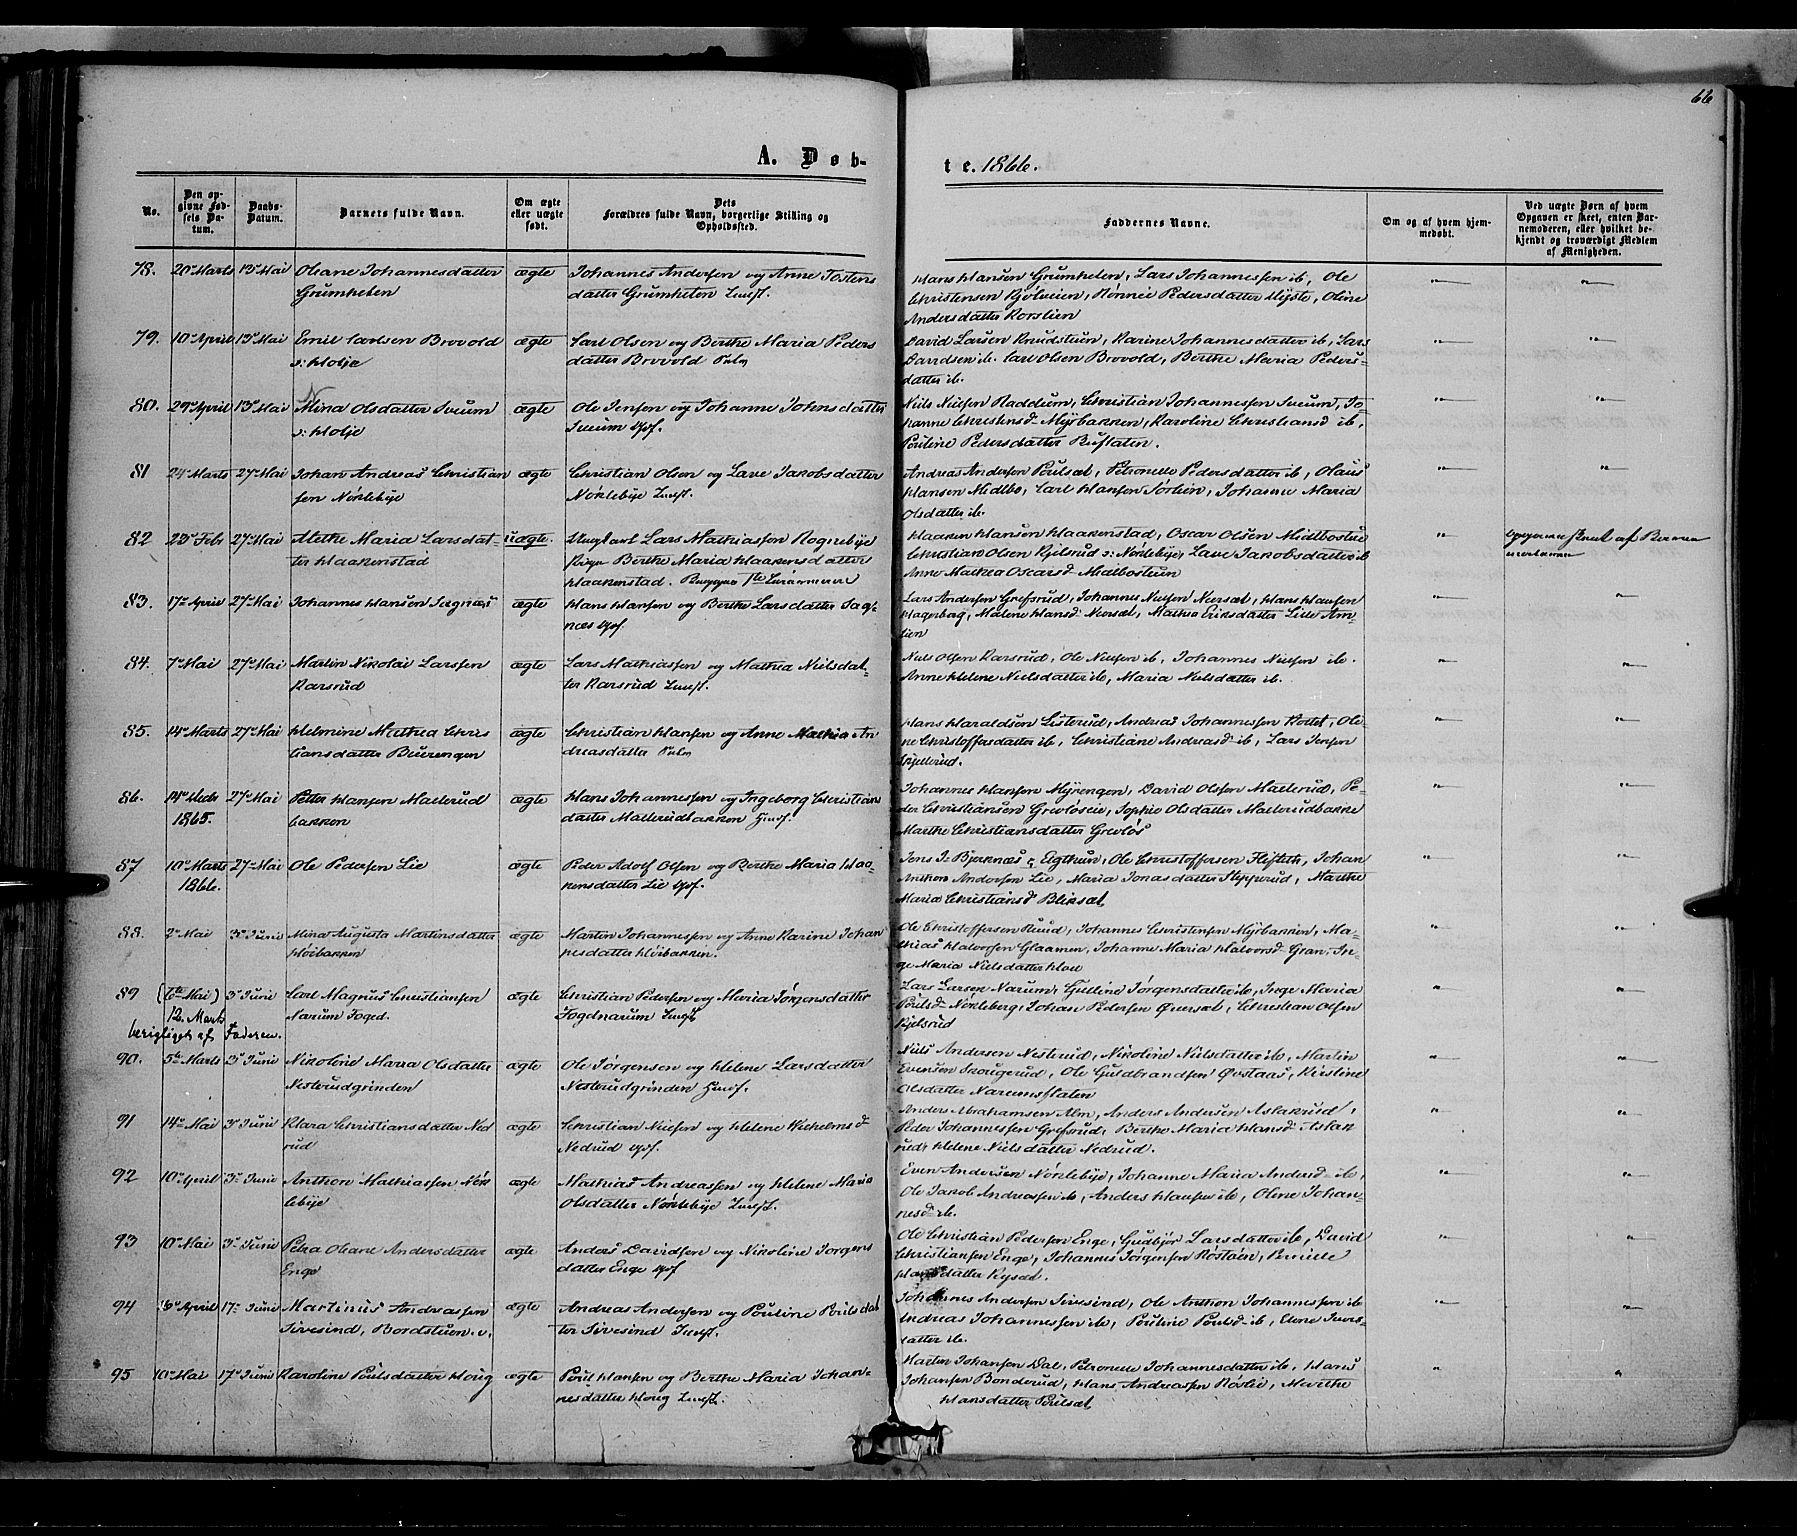 66
A. Døb-
te. 1866.
No.
Den op-
givne Fød-
sels Da-
tum.
Daabs-
Datum.
Barnets fulde Navn.
Om ægte
eller uægte
født.
Dets
Forældres fulde Navn, borgerlige Stilling og
Opholdssted.
Faddernes Navne.
Om og af hvem hjem-
medøbt.
Ved uægte Børn af hvem
Opgaven er skeet, enten Bar-
nemoderen, eller hvilket be-
kjendt og troværdigt Medlem
af Menigheden.
78. 20de Marts 13de Mai Oleane Johannesdatter ægte Johannes Andersen og Anne Tostens
Grumkelen datter Grumkelen
Hans Hansen Grumkelen, Lars Johannessen ib, Ole
Christensen Kjølveien, Rønnei Pedersdatter Myste, Oline
Andersdatter Korslien
79. 10de April 13de Mai Emil Carlsen Brovold ægte Carl Olsen og Berthe Maria Peders
v: Molje datter Brovold
David Larsen Knudstuen, Karine Johannesdatter ib, Lars
Davidsen ib. Carl Olsen Brovold, Berthe Maria Peders-
datter ib.
80. 29de April 13de Mai Mina Olsdatter Sveum ægte Ole Jensen og Johanne Johnsdatter
v: Molje Sveum
Niels Nielsen Raddum, Christian Johannessen Sveum, Jo-
hanne Christensd Myrbakken, Karoline Christiansd ib,
Pouline Pedersdatter Rustaten.
81 24de Marts 27de Mai Johan Andreas Christian ægte Christian Olsen og Lave Jakobsdatter
sen Nøklebye Nøklebye
Andreas Andersen Poulsæt, Petronelle Pedersdatter ib, Olaus
Hansen Midlbo, Carl Hansen Sørlien, Johanne Maria
Olsdatter ib.
82 23de Febr 27de Mai Methe Maria Larsdat- uægte. Ungkarl Lars Mathiassen Rognebye
ter Haakenstad Pigen Berthe Maria Haakensdatter
Haakenstad. Begges 1ste Leiermaal
Haaken Hansen Haakenstad, Oscar Olsen Midlbostue
Christian Olsen Kjelsrus v: Nøklebye, Lave Jakobsdatter ib
Anne Mathea Oscarsd Midlbostuen
Opgaven skeet af Barne
moderen
83. 17de April 27de Mai Johannes Hansen Sagnæs ægte Hans Hansen og Berthe Larsdatter Sag-
næs
Lars Andersen Grefsrud, Johannes Nielsen Nersæt, Hans Hansen
Hagerbag, Malene Hansd Nersæt, Mathea Eriksdatter Lille Am-
lien
84. 7de Mai 27de Mai Martin Nikolai Larssen ægte Lars Mathiassen og Mathea Nielsdat-
Karsrud ter Karsrud
Niels Olsen Karsrud, Ole Nielsen ib, Johannes Nielsen ib.
Anne Helene Nielsdatter ib, Maria Nielsdatter ib.
85. 14de Marts 27de Mai Helmine Mathea Chris ægte Christian Hansen og Anne Mathea An
tiansdatter Buerengen dreasdatter
Hans Haraldsen Listerud, Andreas Johannessen Kortet, Ole
ne Christoffersdatter ib, Christiane Andreasd ib, Lars Jensen
Skjellerud.
86. 14de Decbr 27de Mai Petter Hansen Mallerud ægte Hans Johannessen og Ingeborg Christians
1865. bakken datter Mallerudbakken
Johannes Hansen Myrengen, David Olsen Mallerud, Pe-
der Christiansen Grevløseie, Sophie Olsdatter Mallerudbakke
Marthe Christiansdatter Grevløs
87 10de Marts 27de Mai Ole Pedersen Lie ægte Peder Adolf Olsen og Berthe Maria Haa-
1866. kensdatter Lie
Jens J: Bjerknæs , Ole Christoffersen Flisleth, Johan
Anthon Andersen Lie, Maria Jonasdatter Stepperud, Marthe
Maria Christiansd Bliksæt
88. 2de Mai 3de Juni Mina Augusta Martinsdatter ægte Martin Johannessen og Anne Karine Johan
Høibakken nesdatter Høibakken.
Ole Christoffersen Ruud, Johannes Christensen Myrbakken, Ma-
thias Halvorsen Glaamen, Johanne Maria Halvorsd Gran, In-
ge Maria Nielsdatter
89 (6te Mai) 3de Juni Carl Magnus Christiansen ægte Christian Pedersen og Maria Jørgensdatter
12. Marts Narum Foged. Fogdnarum
berigtiget af Faderen.
Lars Larsen Narum, Gulline Jørgensdatter ib, Inge Maria
Poulsd Nøkleberg, Johan Pedersen Øversæt, Christian Olsen
Kjelsrud
90. 5te Marts 3de Juni Nikoline Maria Olsdatter ægte Ole Jørgensen og Helene Larsdatter
Nesterudgrinden Nesterudgrinden
Niels Andersen Nesterud, Nikoline Nielsdatter ib, Martin
Evensen Skougerud, Ole Guldbrandsen Øvstaas, Kirstine
Olsdatter Narumsflaten
91 14de Mai 3de Juni Klara Christiansdatter Ned ægte Christian Nielsen og Helene Wilhelmsd
rud Nedrud
Anders Abrahamsen Alm, Anders Andersen Aslakrud,
Peder Johannessen Grefsrud, Berthe Maria Hansd Aslak
rud, Helene Nielsdatter Nedrud.
92 10de April 3de Juni Anthon Mathiassen Nøk ægte Mathias Andreassen og Helene Maria
lebye Olsdatter Nøklebye
Even Andersen Nøklebye, Johanne Maria Andersd ib,
Ole Jakob Andreassen ib, Anders Hansen ib, Oline Johan-
nesd ib.
93 10de Mai 3de Juni Petra Oleane Andersdatter ægte Anders Davidsen og Nikoline Jørgens
Enge datter Enge
Ole Christian Pedersen Enge, Gudbjør Larsdatter ib, David
Christiansen Enge, Johannes Jørgensen Røstøen, Pernille
datter Rysæt.
94 6te April 17de Juni Martinus Andreassen ægte Andreas Andersen og Pouline Poulsdat
Sivesind, Bordstuen. v. ter Sivesind
Johannes Andersen Sivesind, Ole Anthon Johannessen ib
Andreas Johannessen ib, Pouline Poulsd ib, Elene Ivers-
datter ib.
95 10de Mai 17de Juni Karoline Poulsdatter Houg ægte Poul Hansen og Berthe Maria Johan-
nesdatter Houg
Martin Johansen Dal, Petronelle Johannesdatter ib, Hans
Johansen Bonderud, Hans Andreassen Røslie, Marthe
Hansdatter Poulsæt